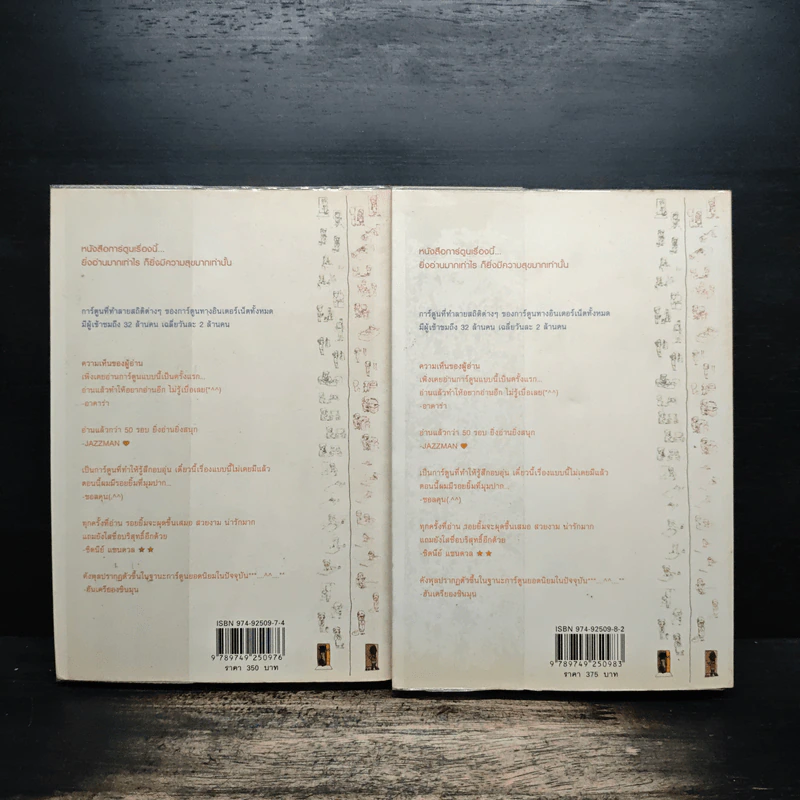 หนังสือการ์ตูนเรื่องนี้...
ยิ่งอ่านมากเท่าไร ก็ยิ่งมีความสุขมากเท่านั้น
การ์ตูนที่ทำลายสถิติต่างๆ ของการ์ตูนทางอินเตอร์เน็ตทั้งหมด
มีผู้เข้าชมถึง 32 ล้านคน เฉลี่ยวันละ 2 ล้านคน
ความเห็นของผู้อ่าน
เพิ่งเคยอ่านการ์ตูนแบบนี้เป็นครั้งแรก...
อ่านแล้วทำให้อยากอ่านอีก ไม่รู้เบื่อเลย(*^^)
-อาคาร่า
อ่านแล้วกว่า 50 รอบ ยิ่งอ่านยิ่งสนุก
-JAZZMAN ♥
เป็นการ์ตูนที่ทำให้รู้สึกอบอุ่น เดี๋ยวนี้เรื่องแบบนี้ไม่เคยมีแล้ว
ตอนนี้ผมมีรอยยิ้มที่มุมปาก...
-ซอลคุน(.^^)
ทุกครั้งที่อ่าน รอยยิ้มจะผุดขึ้นเสมอ สวยงาม น่ารักมาก
แถมยังใสซื่อบริสุทธิ์อีกด้วย
-ซิดนีย์ แซนดวล ★★
ดังพุลปรากฏตัวขึ้นในฐานะการ์ตูนยอดนิยมในปัจจุบัน***...^^...**
-ฮันเครียองซินมุน
ISBN 974-92509-7-4
9 789749 250976
ราคา 350 บาท
หนังสือการ์ตูนเรื่องนี้...
ยิ่งอ่านมากเท่าไร ก็ยิ่งมีความสุขมากเท่านั้น
การ์ตูนที่ทำลายสถิติต่างๆ ของการ์ตูนทางอินเตอร์เน็ตทั้งหมด
มีผู้เข้าชมถึง 32 ล้านคน เฉลี่ยวันละ 2 ล้านคน
ความเห็นของผู้อ่าน
เพิ่งเคยอ่านการ์ตูนแบบนี้เป็นครั้งแรก...
อ่านแล้วทำให้อยากอ่านอีก ไม่รู้เบื่อเลย(*^^)
-อาคาร่า
อ่านแล้วกว่า 50 รอบ ยิ่งอ่านยิ่งสนุก
-JAZZMAN ♥
เป็นการ์ตูนที่ทำให้รู้สึกอบอุ่น เดี๋ยวนี้เรื่องแบบนี้ไม่เคยมีแล้ว
ตอนนี้ผมมีรอยยิ้มที่มุมปาก...
-ซอลคุน(.^^)
ทุกครั้งที่อ่าน รอยยิ้มจะผุดขึ้นเสมอ สวยงาม น่ารักมาก
แถมยังใสซื่อบริสุทธิ์อีกด้วย
-ซิดนีย์ แซนดวล ★★
ดังพุลปรากฏตัวขึ้นในฐานะการ์ตูนยอดนิยมในปัจจุบัน***...^^...**
-ฮันเครียองซินมุน
ISBN 974-92509-8-2
9 789749 250983
ราคา 375 บาท